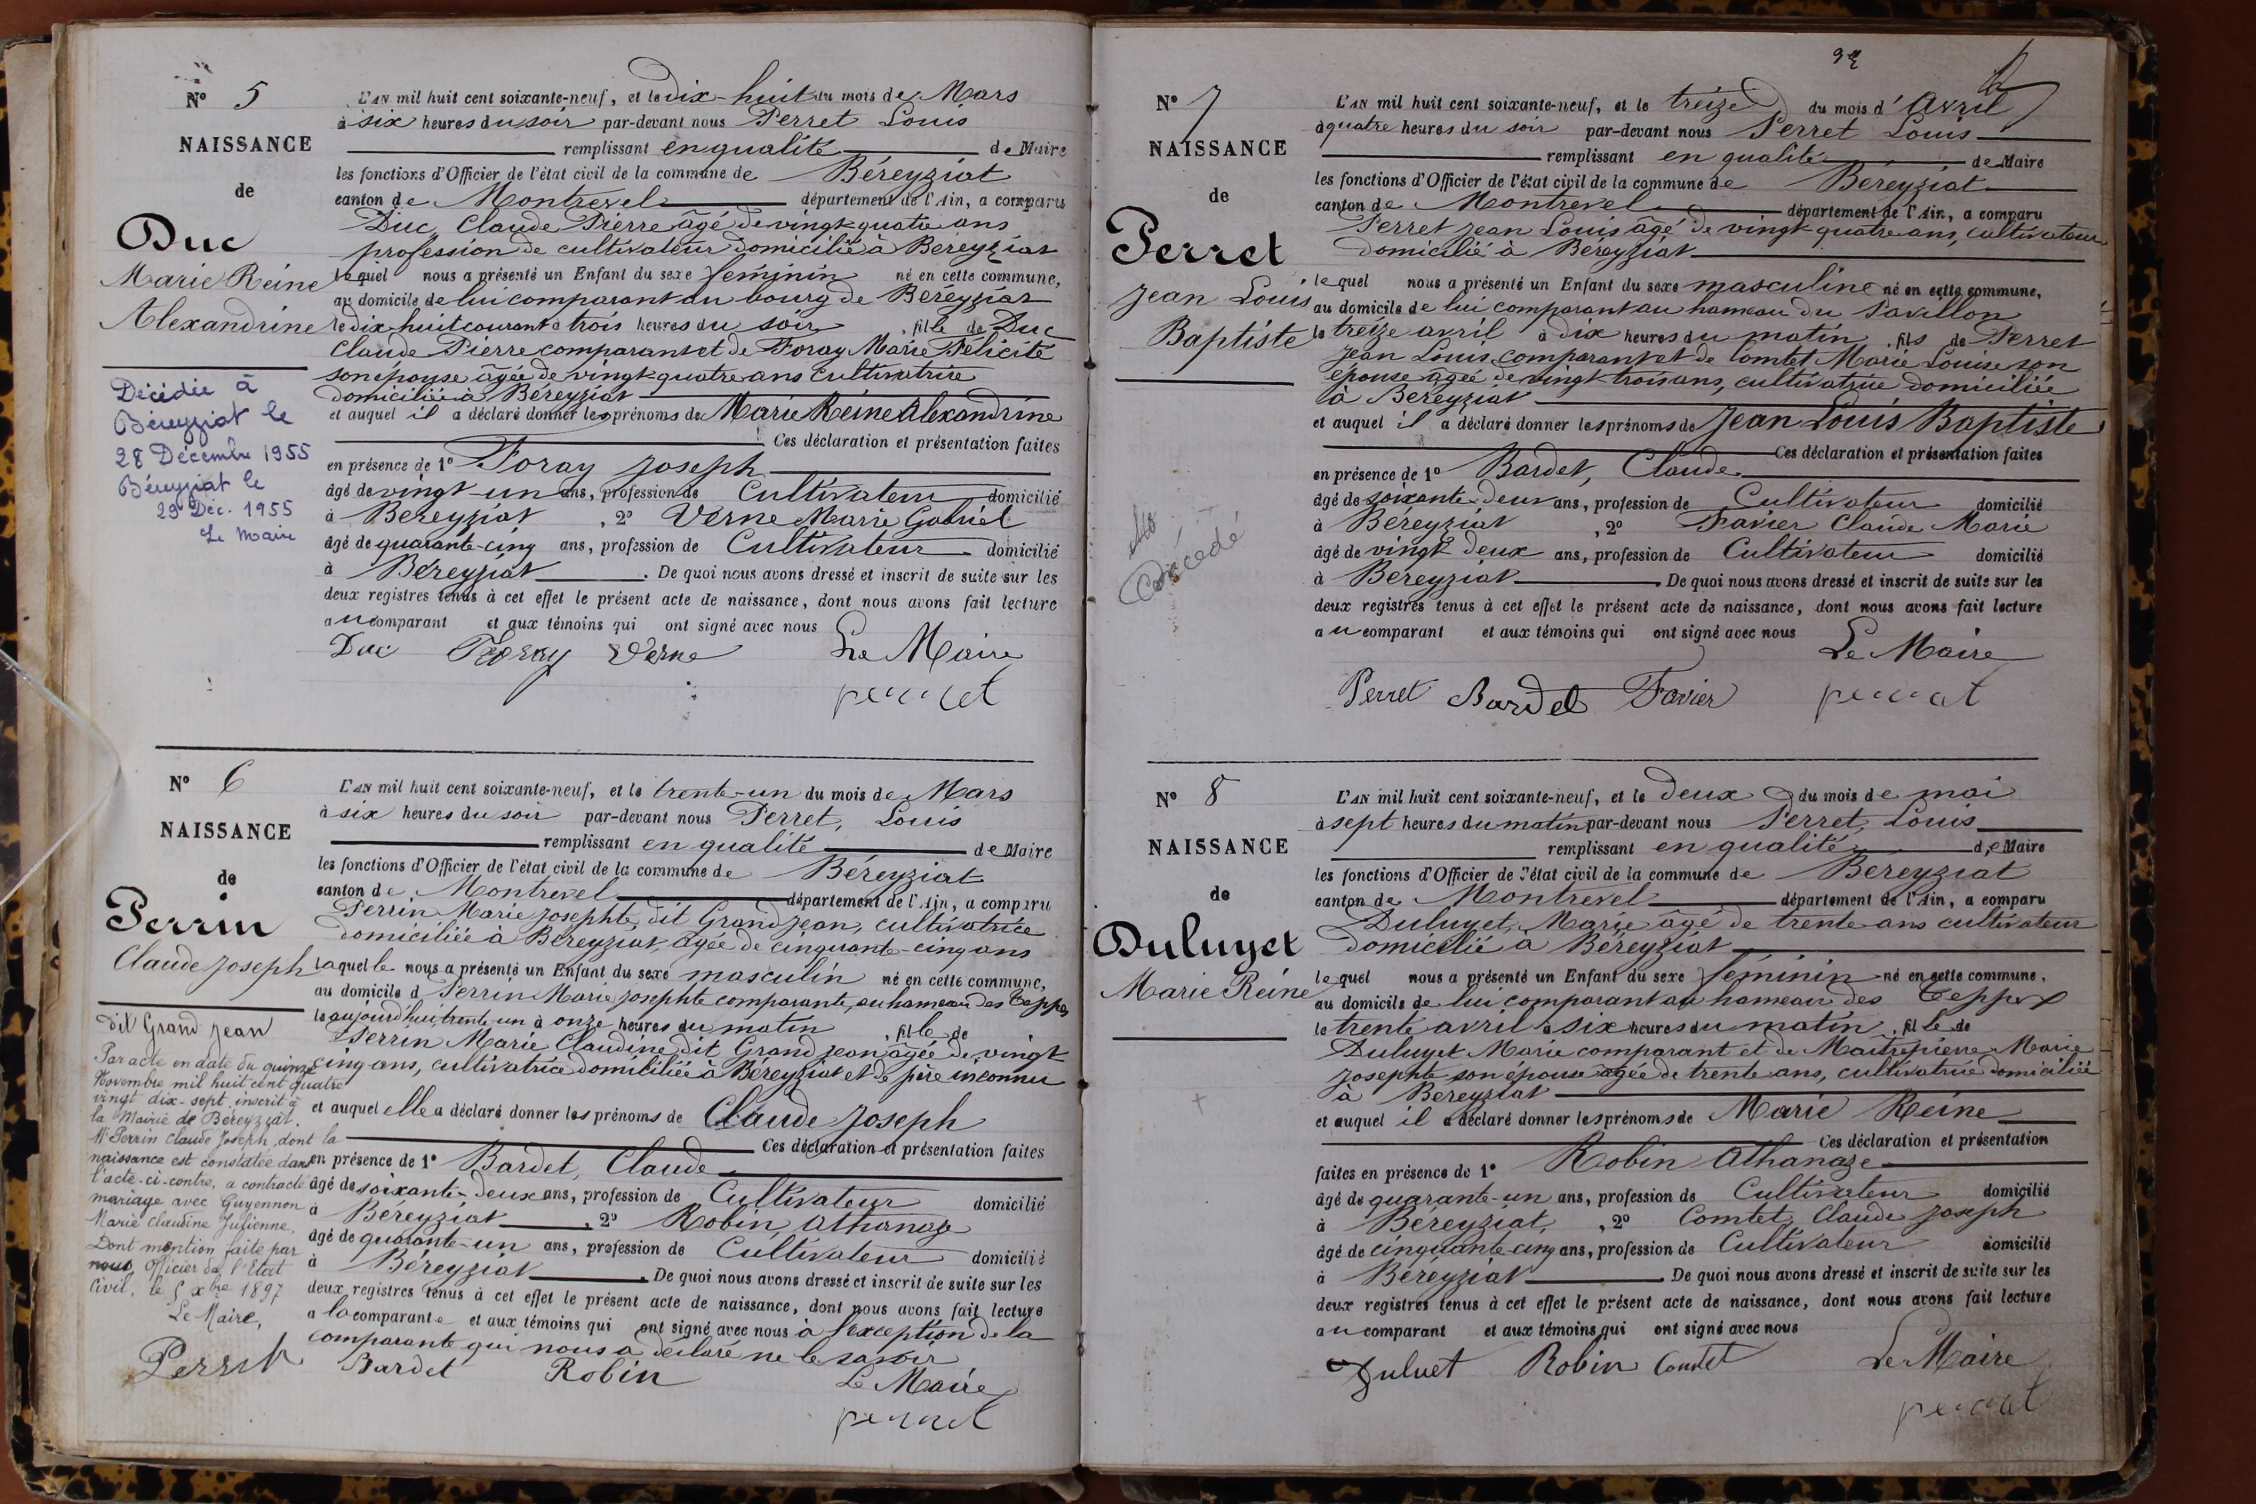 Nº 5
NAISSANCE
de
Duc
Marie Reine
Alexandrine
Décédée à
Béreyziat le
28 Décembre 1955
Béreyziat le
29 Déc. 1955
Le Maire
L'AN mil huit cent soixante-neuf, et le dix-huit du mois de Mars
à six heures du soir par-devant nous Perret Louis
remplissant en qualité de Maire
les fonctions d'Officier de l'état civil de la commune de Béreyziat
canton de Montrevel département de l'Ain, a comparu
Duc, Claude Pierre âgé de vingt quatre ans
profession de cultivateur domicilié à Béreyziat
lequel nous a présenté un Enfant du sexe féminin né en cette commune,
au domicile de lui comparant au bourg de Béreyziat
le dix-huit courant à trois heures du soir, fille de Duc
Claude Pierre comparant et de Foray Marie Félicité
son épouse âgée de vingt quatre ans cultivatrice
domiciliée à Béreyziat
et auquel il a déclaré donner les prénoms de Marie Reine Alexandrine
Ces déclaration et présentation faites
en présence de 1º Foray Joseph
âgé de vingt-un ans, profession de Cultivateur domicilié
à Béreyziat, 2º Verne Marie Gabriel
âgé de quarante-cinq ans, profession de Cultivateur domicilié
à Béreyziat. De quoi nous avons dressé et inscrit de suite sur les
deux registres tenus à cet effet le présent acte de naissance, dont nous avons fait lecture
au comparant et aux témoins qui ont signé avec nous
Duc Foray Verne Le Maire
perret
Nº 6
NAISSANCE
de
Perrin
Claude Joseph
dit Grand Jean
Par acte en date du quinze
Novembre mil huit cent quatre
vingt dix-sept inscrit à
la Mairie de Béreyziat.
Mr Perrin Claude Joseph, dont la
naissance est constatée dans
l'acte-ci-contre, a contracté
mariage avec Guyennon
Marie Claudine Julienne.
Dont mention faite par
nous Officier de l'Etat
Civil, le 5 xbre 1897
Le Maire,
Perret
L'AN mil huit cent soixante-neuf, et le trente-un du mois de Mars
à six heures du soir par-devant nous Perret, Louis
remplissant en qualité de Maire
les fonctions d'Officier de l'état civil de la commune de Béreyziat
canton de Montrevel département de l'Ain, a comparu
Perrin Marie Josephte, dit Grand Jean, cultivatrice
domiciliée à Béreyziat, âgée de cinquante-cinq ans
laquelle nous a présenté un Enfant du sexe masculin né en cette commune,
au domicile d Perrin Marie Josephte comparante, au hameau des Teppes
le aujourd'hui trente un à onze heures du matin, file de
Perrin Marie Claudine dit Grand Jean âgée de vingt
cinq ans, cultivatrice domiciliée à Béreyziat et de père inconnu
et auquel elle a déclaré donner les prénoms de Claude Joseph
Ces déclaration et présentation faites
en présence de 1º Bardet, Claude
âgé de soixante-deux ans, profession de Cultivateur domicilié
à Béreyziat, 2º Robin Athanaze
âgé de quarante-un ans, profession de Cultivateur domicilié
à Béreyziat. De quoi nous avons dressé et inscrit de suite sur les
deux registres tenus à cet effet le présent acte de naissance, dont nous avons fait lecture
a la comparante et aux témoins qui ont signé avec nous à l'exception de la
comparante qui nous a déclaré ne le savoir
Bardet Robin Le Maire
perret
Nº 7
NAISSANCE
de
Perret
Jean Louis
Baptiste
décédé
L'AN mil huit cent soixante-neuf, et le treize du mois d'Avril
à quatre heures du soir par-devant nous Perret Louis
remplissant en qualité de Maire
les fonctions d'Officier de l'état civil de la commune de Béreyziat
canton de Montrevel département de l'Ain, a comparu
Perret Jean Louis âgé de vingt quatre ans, cultivateur
domicilié à Béreyziat
lequel nous a présenté un Enfant du sexe masculine né en cette commune,
au domicile de lui comparant au hameau du Pavillon
le treize avril à dix heures du matin, fils de Perret
Jean Louis comparant et de Comtet Marie Louise son
épouse âgée de vingt trois ans, cultivatrice domiciliée
à Béreyziat
et auquel il a déclaré donner les prénoms de Jean Louis Baptiste
Ces déclaration et présentation faites
en présence de 1º Bardet, Claude
âgé de soixante-deux ans, profession de Cultivateur domicilié
à Béreyziat, 2º Favier Claude Marie
âgé de vingt deux ans, profession de Cultivateur domicilié
à Béreyziat. De quoi nous avons dressé et inscrit de suite sur les
deux registres tenus à cet effet le présent acte de naissance, dont nous avons fait lecture
au comparant et aux témoins qui ont signé avec nous
Le Maire
Perret Bardet Favier perret
Nº 8
NAISSANCE
de
Duluyet
Marie Reine
L'AN mil huit cent soixante-neuf, et le deux du mois de mai
à sept heures du matin par-devant nous Perret, Louis
remplissant en qualité de Maire
les fonctions d'Officier de l'état civil de la commune de Béreyziat
canton de Montrevel département de l'Ain, a comparu
Duluyet, Marie âgé de trente ans cultivateur
domicilié à Béreyziat
lequel nous a présenté un Enfant du sexe féminin né en cette commune,
au domicile de lui comparant au hameau des Teppes
le trente avril à six heures du matin, fille de
Duluyet Marie comparant et de Maîtrepierre Marie
Josephte son épouse âgée de trente ans, cultivatrice domiciliée
à Béreyziat
et auquel il a déclaré donner les prénoms de Marie Reine
Ces déclaration et présentation
faites en présence de 1º Robin Athanaze
âgé de quarante-un ans, profession de Cultivateur domicilié
à Béreyziat, 2º Comtet, Claude Joseph
âgé de cinquante-cinq ans, profession de Cultivateur domicilié
à Béreyziat. De quoi nous avons dressé et inscrit de suite sur les
deux registres tenus à cet effet le présent acte de naissance, dont nous avons fait lecture
au comparant et aux témoins qui ont signé avec nous
Duluet Robin Comtet Le Maire
perret